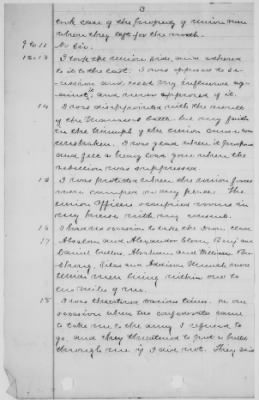 3
took care of the property of union men
when they left for the north.
9 to 11 No Sir.
12-13 I took the union side and adhered
to it to the last. I was opposed to se-
cession and used my influence
against it and never approved of it.
14 I was disappointed with the result
of the Manassas battle but my faith
in the triumph of the union cause was
unshaken. I was glad when it
and felt a being was gone when the
rebellion was suppressed.
15 I was protected when the union forces
were camped on my farm. The
union officers occupied rooms in
my house with my consent.
16 I had no occasion to take the Iron clad
17 Absalom and Alexander Benj.
Daniel Abraham and William
Silas and
living within one to
six miles of me.
18 I was threatened various times. On one
occasion when two confederates came
to take me to the army I refused to
go, and they threatened to put a bullet
through me if I did not. They said